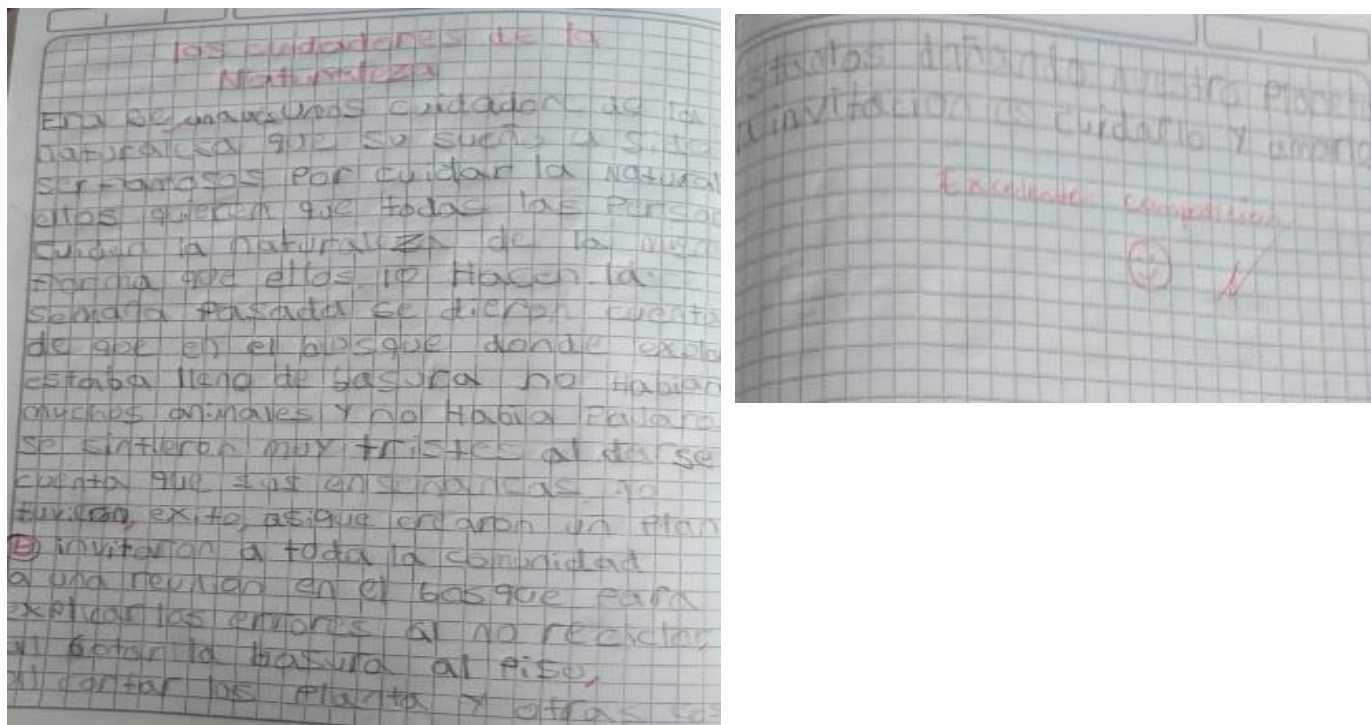 los cuidadores de la
Naturaleza
Era se una vez unos cuidadore de la
naturaleza que su sueño a sido
ser famosos por cuidar la Natural
ellos quieren que todas las Person
cuiden la naturaleza de la
manera que ellos lo Hacen la
semana Pasada se dieron cuenta
de que en el bosque donde explo
estaba lleno de basura no Habian
muchos animales y no Habia Pajaro
se sintieron muy tristes al darse
cuenta que sus enseñancas no
tuvieron, exito, asique crearon un Plan
invitaron a toda la comunidad
a una reunion en el bosque para
explicar los errores al no reciclar,
al botar la basura al Piso,
al cortar las Planta y otras cos
stamos dañando nuestro Planet
a invitación es cuidarlo y amarlo
Excelente composición.